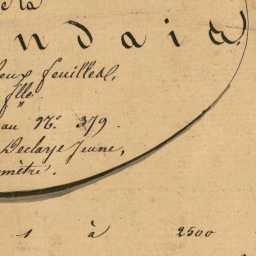 de la
ndaie.
deux feuilles,
flle
au N° 379.
Declaye Jeune,
mètre.
1 à 2500